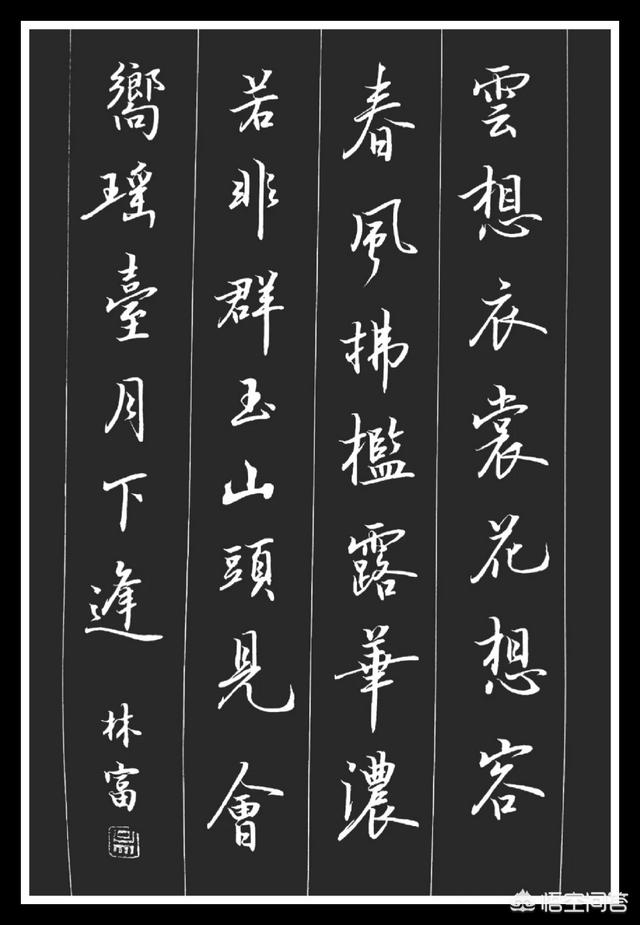 雲想衣裳花想容
春風拂檻露華濃
若非群玉山頭見會
嚮瑤臺月下逢
林富
悟空问答